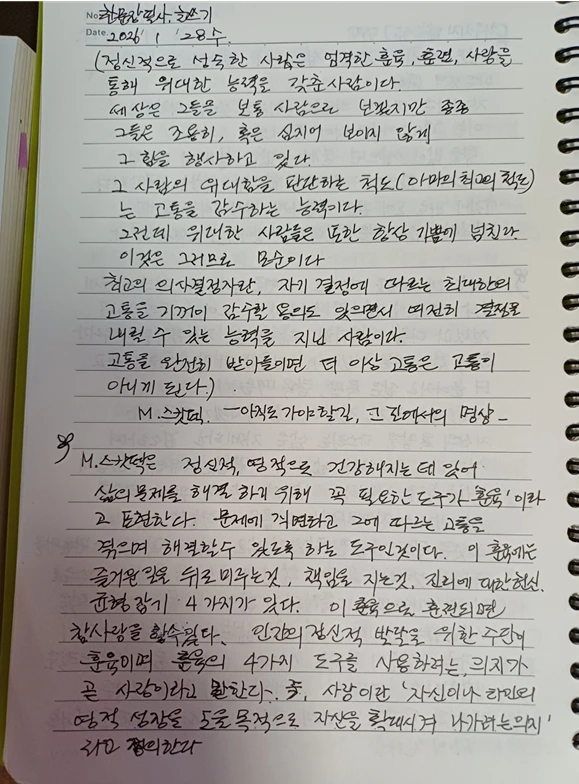 No. 한문장필사, 글쓰기
Date. 2026 1 28 수.
(정신적으로 성숙한 사람은 엄격한 훈육, 훈련, 사랑을
통해 위대한 능력을 갖춘사람이다.
세상은 그들을 보통 사람으로 보겠지만 종종
그들은 조용히, 혹은 심지어 보이지 않게
그 힘을 행사하고 있다.
그 사람의 위대함을 판단하는 척도(아마의 최고의 척도)
는 고통을 감수하는 능력이다.
그런데 위대한 사람들은 또한 항상 기쁨에 넘친다.
이것은 그러므로 모순이다
최고의 의사결정자란, 자기 결정에 따르는 최대한의
고통을 기꺼이 감수할 용의도 있으면서 여전히 결정을
내릴 수 있는 능력을 지닌 사람이다.
고통을 완전히 받아들이면 더 이상 고통은 고통이
아니게 된다.)
M.스캇펙. -아직도가야할길, 그 길에서의 명상-
M.스캇펙은 정신적, 영적으로 건강해지는데 있어
삶의 문제를 해결 하기 위해 꼭 필요한 도구가 '훈육'이라
고 표현한다. 문제에 직면하고 그에 따르는 고통을
겪으며 해결할수 있도록 하는 도구인것이다. 이 훈육에는
즐거운 일을 뒤로 미루는것, 책임을 지는것, 진리에 대한 헌신,
균형잡기 4가지가 있다. 이 훈육으로 훈련되면
참사랑을 할수있다. 인간의 정신적 발달을 위한 수단이
훈육이며 훈육의 4가지 도구를 사용하려는 의지가
곧 사랑이라고 말한다. 즉, 사랑이란 '자신이나 타인의
영적 성장을 도울 목적으로 자신을 확대시켜 나가려는의지'
라고 정의한다